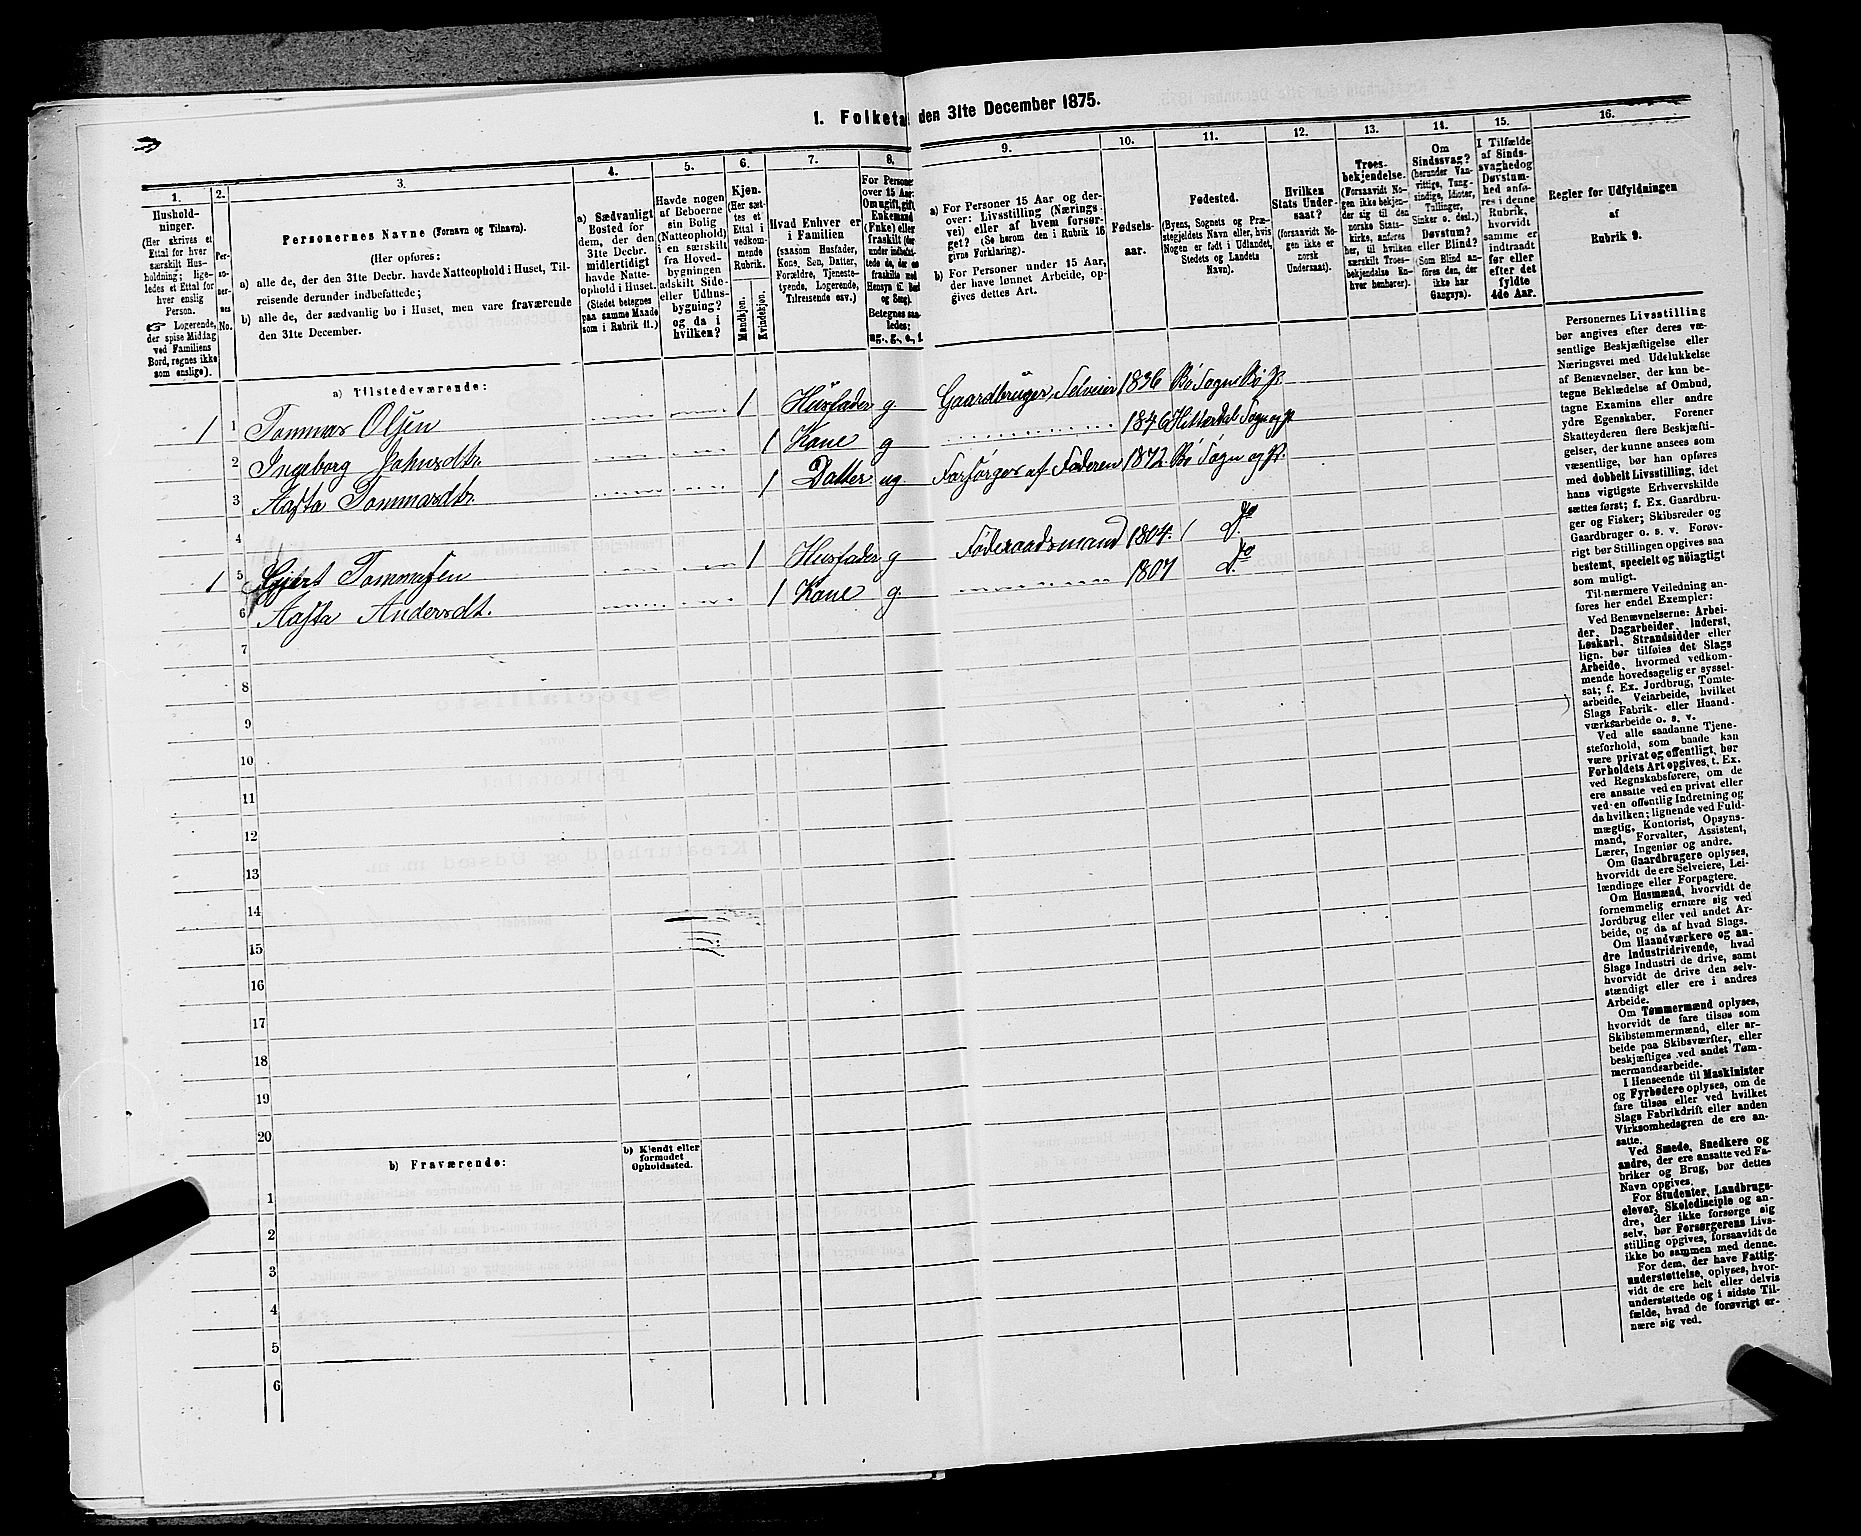 1. Folketa den 31te December 1875.
1. 2. 3. 4. 5. 6. 7. 8. 9. 10. 11. 12. 13. 14. 15. 16.
Hushold-
ninger.
(Her skrives et
Ettal for hver
særskilt Hus-
holdning; lige-
ledes et Ettal for
hver enslig
Person.
☞ Logerende,
der spise Middag
ved Familiens
Bord, regnes ikke
som enslige).
Per-
so-
ner-
nes
No.
Personernes Navne (Fornavn og Tilnavn).
(Her opføres:
a) alle de, der den 31te Decbr. havde Natteophold i Huset, Til-
reisende derunder indbefattede;
b) alle de, der sædvanlig bo i Huset, men vare fraværende
den 31te December.
a) Sædvanligt
Bosted for
dem, der den
31te Decbr.
midlertidigt
havde Natte-
ophold i Huset.
(Stedet betegnes
paa samme Maade
som i Rubrik 11.)
Havde nogen
af Beboerne
sin Bolig
(Natteophold)
i en særskilt
fra Hoved-
bygningen
adskilt Side-
eller Udhus-
bygning?
og da i
hvilken?
Kjøn.
(Her sæt-
tes et
Ettal i
vedkom-
mende
Rubrik.
Mandkjøn.
Kvindekjøn.
Hvad Enhver er
i Familien
(saasom Husfader,
Kone, Søn, Datter,
Forældre, Tjeneste-
tyende, Logerende,
Tilreisende osv.)
For Personer
over 15 Aar:
Om ugift, gift,
Enkemand
(Enke) eller
fraskilt (der-
under indbefat-
tede de, der ere
fraskilte med
Hensyn til Bord
og Seng).
Betegnes saa-
ledes:
ug., g., e., f.
a) For Personer 15 Aar og der-
over: Livsstilling (Nærings-
vei) eller af hvem forsør-
get? (Se herom den i Rubrik 16
givne Forklaring).
b) For Personer under 15 Aar,
der have lønnet Arbeide, op-
gives dettes Art.
Fødsels-
aar.
Fødested.
(Byens, Sognets og Præ-
stegjeldets Navn eller, hvis
Nogen er født i Udlandet,
Stedets og Landets
Navn).
Hvilken
Stats Under-
saat?
(forsaavidt No-
gen ikke er
norsk
Undersaat).
Troes-
bekjendelse.
(Forsaavidt No-
gen ikke bekjen-
der sig til den
norske Stats-
kirke, anføres
her, til hvilken
særskilt Troes-
bekjendelse En-
hver henhører).
Om
Sindssvag?
(herunder Van-
vittige, Tung-
sindige, Idioter,
Tullinger,
Sinker o. desl.)
Døvstum?
eller Blind?
(Som Blind an-
føres den, der
ikke har
Gangsyn).
I Tilfælde
af Sinds-
svaghed og
Døvstum-
hed anfø-
res i denne
Rubrik,
hvorvidt
samme er
indtraadt
før eller
efter det
fyldte
4de Aar.
Regler for Udfyldningen
af
Rubrik 9.
a) Tilstedeværende:
1 1 Tommas Olsen 1 Husfader g Gaardbruger, Selveier 1836 Bø Sogn Bø P.
2 Ingeborg Johnsdtr. 1 Kone g 1846 Hitterdal Sogn og P.
3 Aasta Tommasdtr. 1 Datter ug. Forsørges af Faderen 1872. Bø Sogn og P.
4
1 5 Tommasen 1 Husfader g Føderaadsmand 1804. Do
6 Aasta Andersdt. 1 Kone g. 1807 Do
7
8
9
10
11
12
13
14
15
16
17
18
19
20
b) Fraværende:
b) Kjendt eller
formodet
Opholdssted.
1
2
3
4
5
6
Personernes Livsstilling
bør angives efter deres væ-
sentlige Beskjæftigelse eller
Næringsvei med Udelukkelse
af Benævnelser, der kun be-
tegne Beklædelse af Ombud,
tagne Examina eller andre
ydre Egenskaber. Forener
Skatteyderen flere Beskjæfti-
gelser, der kunne ansees som
væsentlige, bør han opføres
med dobbelt Livsstilling, idet
hans vigtigste Erhvervskilde
sættes først; f. Ex. Gaardbru-
ger og Fisker; Skibsreder og
Gaardbruger o. s. v. Forøv-
rigt bør Stillingen opgives saa
bestemt, specielt og nøiagtigt
som muligt.
Til nærmere Veiledning an-
føres her endel Exempler:
Ved Benævnelserne: Arbei-
der, Dagarbeider, Inderst,
Løskarl, Strandsidder eller
lign. bør tilføies det Slags
Arbeide, hvormed vedkom-
mende hovedsagelig er syssel-
sat; f. Ex. Jordbrug, Tomte-
arbeide, Veiarbeide, hvilket
Slags Fabrik- eller Haand-
værksarbeide o. s. v.
Ved alle saadanne Tjene-
steforhold, som baade kan
være privat og offentligt, bør
Forholdets Art opgives, t. Ex.
ved Regnskabsførere, om de
ere ansatte ved en privat eller
ved en offentlig Indretning og
da hvilken; lignende ved Fuld-
mægtig, Kontorist, Opsyns-
mand, Forvalter, Assistent,
Lærer, Ingeniør og andre.
Om Gaardbrugere oplyses,
hvorvidt de ere Selveiere, Lei-
lændinge eller Forpagtere.
Om Husmænd, hvorvidt de
fornemmelig ernære sig ved
Jordbrug eller ved andet Ar-
beide, og da af hvad Slags.
Om Haandværkere og an-
dre Industridrivende, hvad
Slags Industri de drive, samt
hvorvidt de drive den selv-
stændigt eller ere i andres
Arbeide.
Om Tømmermænd oplyses,
hvorvidt de fare tilsøs som
Skibstømmermænd, eller ar-
beide paa Skibsværfter, eller
beskjæftiges ved andet Tøm-
mermandsarbeide.
I Henseende til Maskinister
og Fyrbødere oplyses, om de
fare tilsøs eller ved hvilket
Slags Fabrikdrift eller anden
Virksomhedsgren de ere an-
satte.
Ved Smede, Snedkere og
andre, der ere ansatte ved Fa-
briker og Brug, bør dettes
Navn opgives.
For Studenter, Landbrugs-
elever, Skoledisciple og an-
dre, der ikke forsørge sig
selv, bør Forsørgerens Livs-
stilling opgives, forsaavidt de
ikke bo sammen med denne.
For dem, der have Fattig-
understøttelse, oplyses, hvor-
vidt de ere helt eller delvis
understøttede og i sidste Til-
fælde, hvad de forøvrigt er-
nære sig ved.